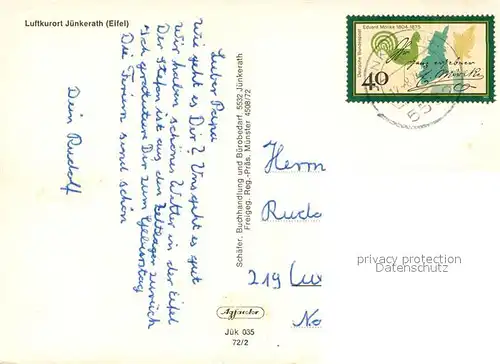 Luftkurort Jünkerath (Eifel)
Lieber Papa
wie geht es Dir? Uns geht es gut
Wir haben schönes Wetter in der Eifel
Der Stefan ist aus den Zeltlager zurück
Ich gratuliere Dir zum Geburtstag
Die Ferien sind schön
Dein Rudolf
Schäfer, Buchhandlung und Bürobedarf, 5532 Jünkerath
Freigeg. Reg.-Präs. Münster 4508/72
Agfacolor
Jük 035
72/2
Deutsche Bundespost
Eduard Mörike 1804-1875
40
Herrn
219
privacy protection
Datenschutz